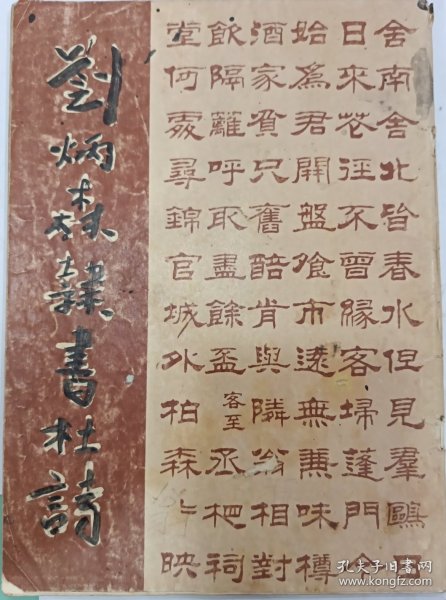 劉炳森隸書杜詩
舍南舍北皆春水但見羣鷗日
日來花徑不曾緣客埽蓬門今
始爲君開盤飧市遠無兼味樽
酒家貧只舊醅肯與隣翁相對
飲隔籬呼取盡餘盃客至丞相祠
堂何處尋錦官城外柏森々映
孔夫子旧书网
www.kongfz.com